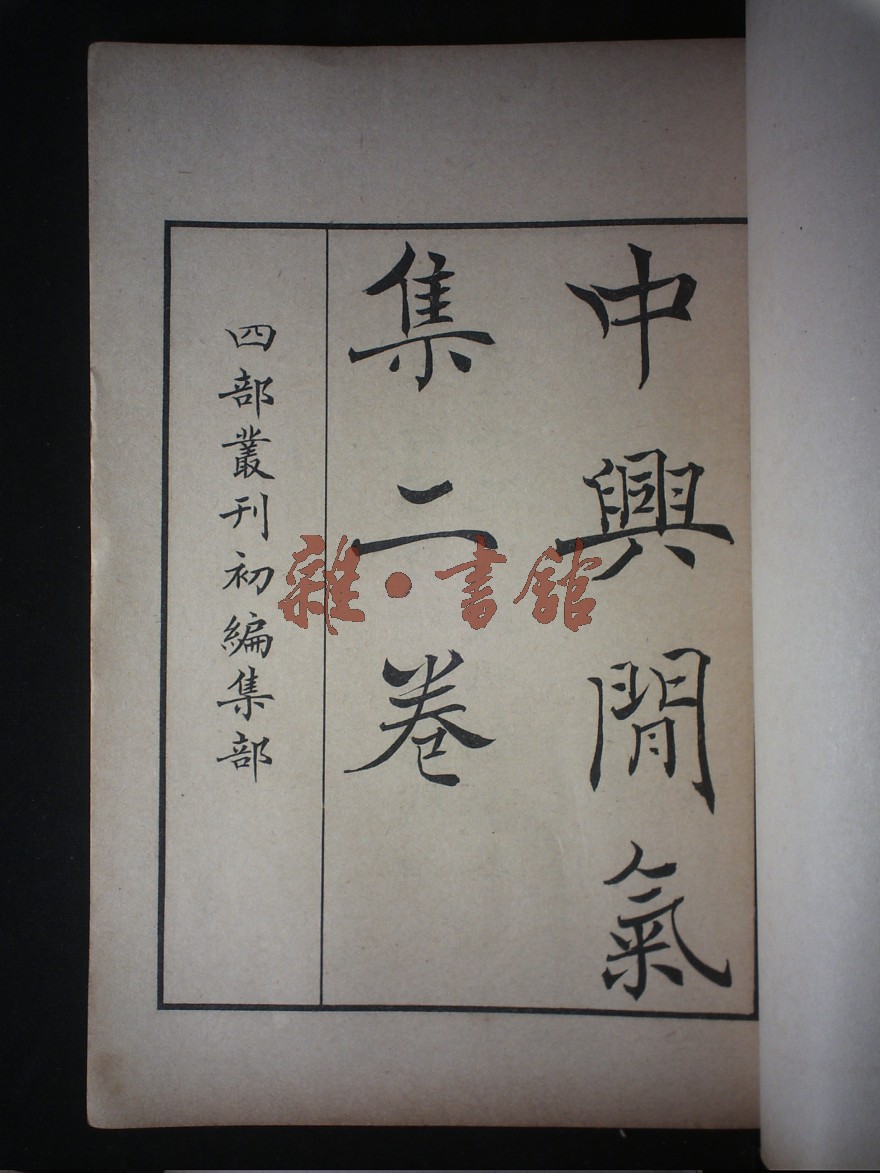 中興閒氣
集二卷
四部叢刊初編集部
雜·書館